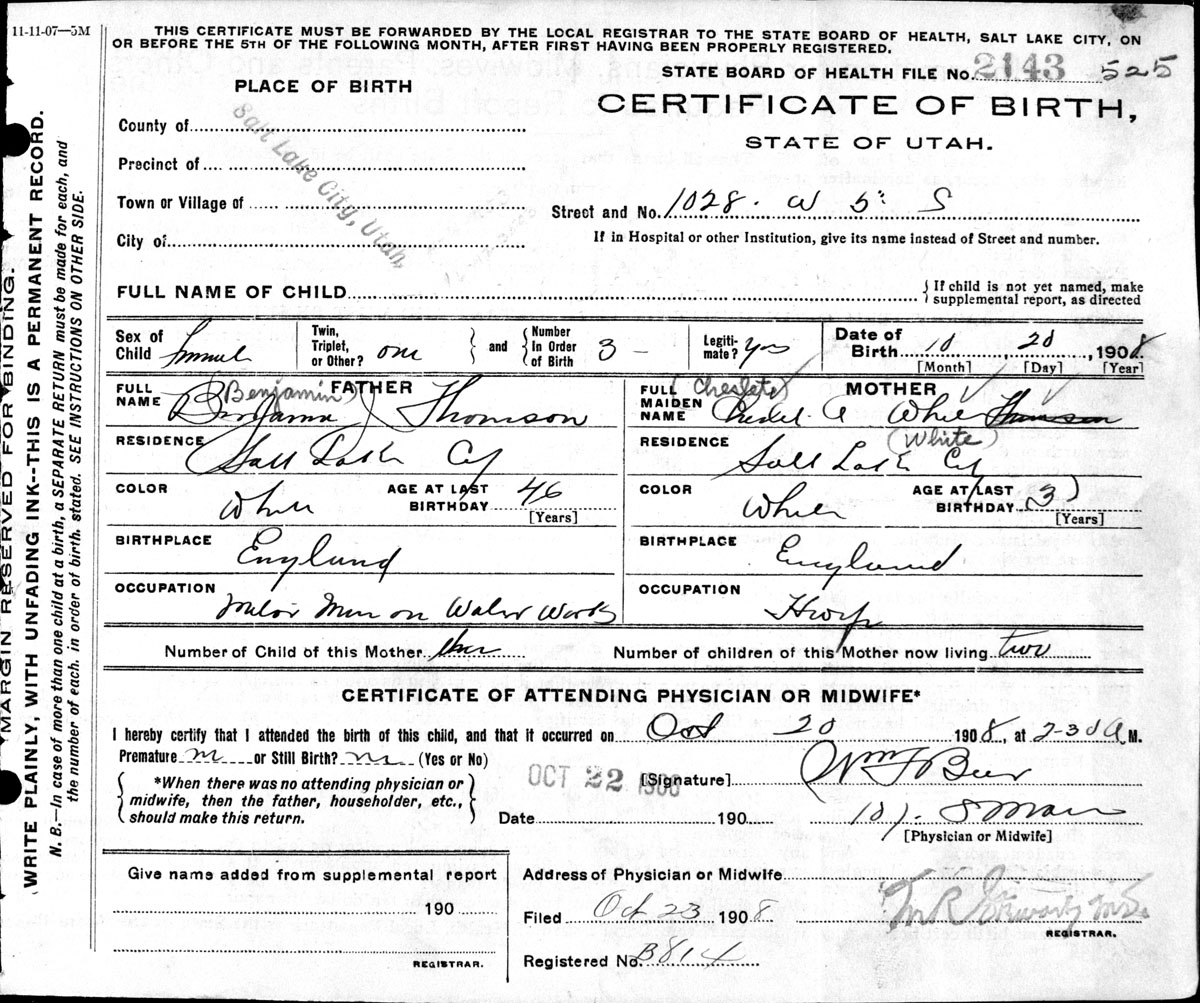 11-11-07—5M
THIS CERTIFICATE MUST BE FORWARDED BY THE LOCAL REGISTRAR TO THE STATE BOARD OF HEALTH, SALT LAKE CITY, ON
OR BEFORE THE 5TH OF THE FOLLOWING MONTH, AFTER FIRST HAVING BEEN PROPERLY REGISTERED.
STATE BOARD OF HEALTH FILE No. 2143 525
PLACE OF BIRTH
CERTIFICATE OF BIRTH,
STATE OF UTAH.
County of
Precinct of
Town or Village of
City of
Salt Lake City, Utah,
Street and No. 1028. W 5: S
If in Hospital or other Institution, give its name instead of Street and number.
FULL NAME OF CHILD
{ If child is not yet named, make
supplemental report, as directed
Sex of Child
Twin, Triplet, or Other? one } and { Number In Order of Birth 3 -
Legiti-mate? yes
Date of Birth 10, 20, 1908
[Month] [Day] [Year]
FATHER
FULL NAME (Benjamin) Benjamin Thomson
RESIDENCE Salt Lake Cy
COLOR White
AGE AT LAST BIRTHDAY 46
[Years]
BIRTHPLACE England
OCCUPATION Men on Water Works
MOTHER
FULL MAIDEN NAME White Thomson
(White)
RESIDENCE Salt Lake Cy
COLOR White
AGE AT LAST BIRTHDAY
[Years]
BIRTHPLACE England
OCCUPATION
Number of Child of this Mother three
Number of children of this Mother now living two
CERTIFICATE OF ATTENDING PHYSICIAN OR MIDWIFE*
I hereby certify that I attended the birth of this child, and that it occurred on Oct 20 1908, at 2-30 A M.
Premature or Still Birth? (Yes or No)
{ *When there was no attending physician or
midwife, then the father, householder, etc.,
should make this return. }
OCT 22 1908
[Signature] Wm F Beer
Date 190
[Physician or Midwife]
Give name added from supplemental report
190
REGISTRAR.
Address of Physician or Midwife
Filed Oct 23 1908
REGISTRAR.
Registered No. B814
MARGIN RESERVED FOR BINDING.
WRITE PLAINLY, WITH UNFADING INK--THIS IS A PERMANENT RECORD.
N. B.—In case of more than one child at a birth, a SEPARATE RETURN must be made for each, and
the number of each, in order of birth, stated. SEE INSTRUCTIONS ON OTHER SIDE.